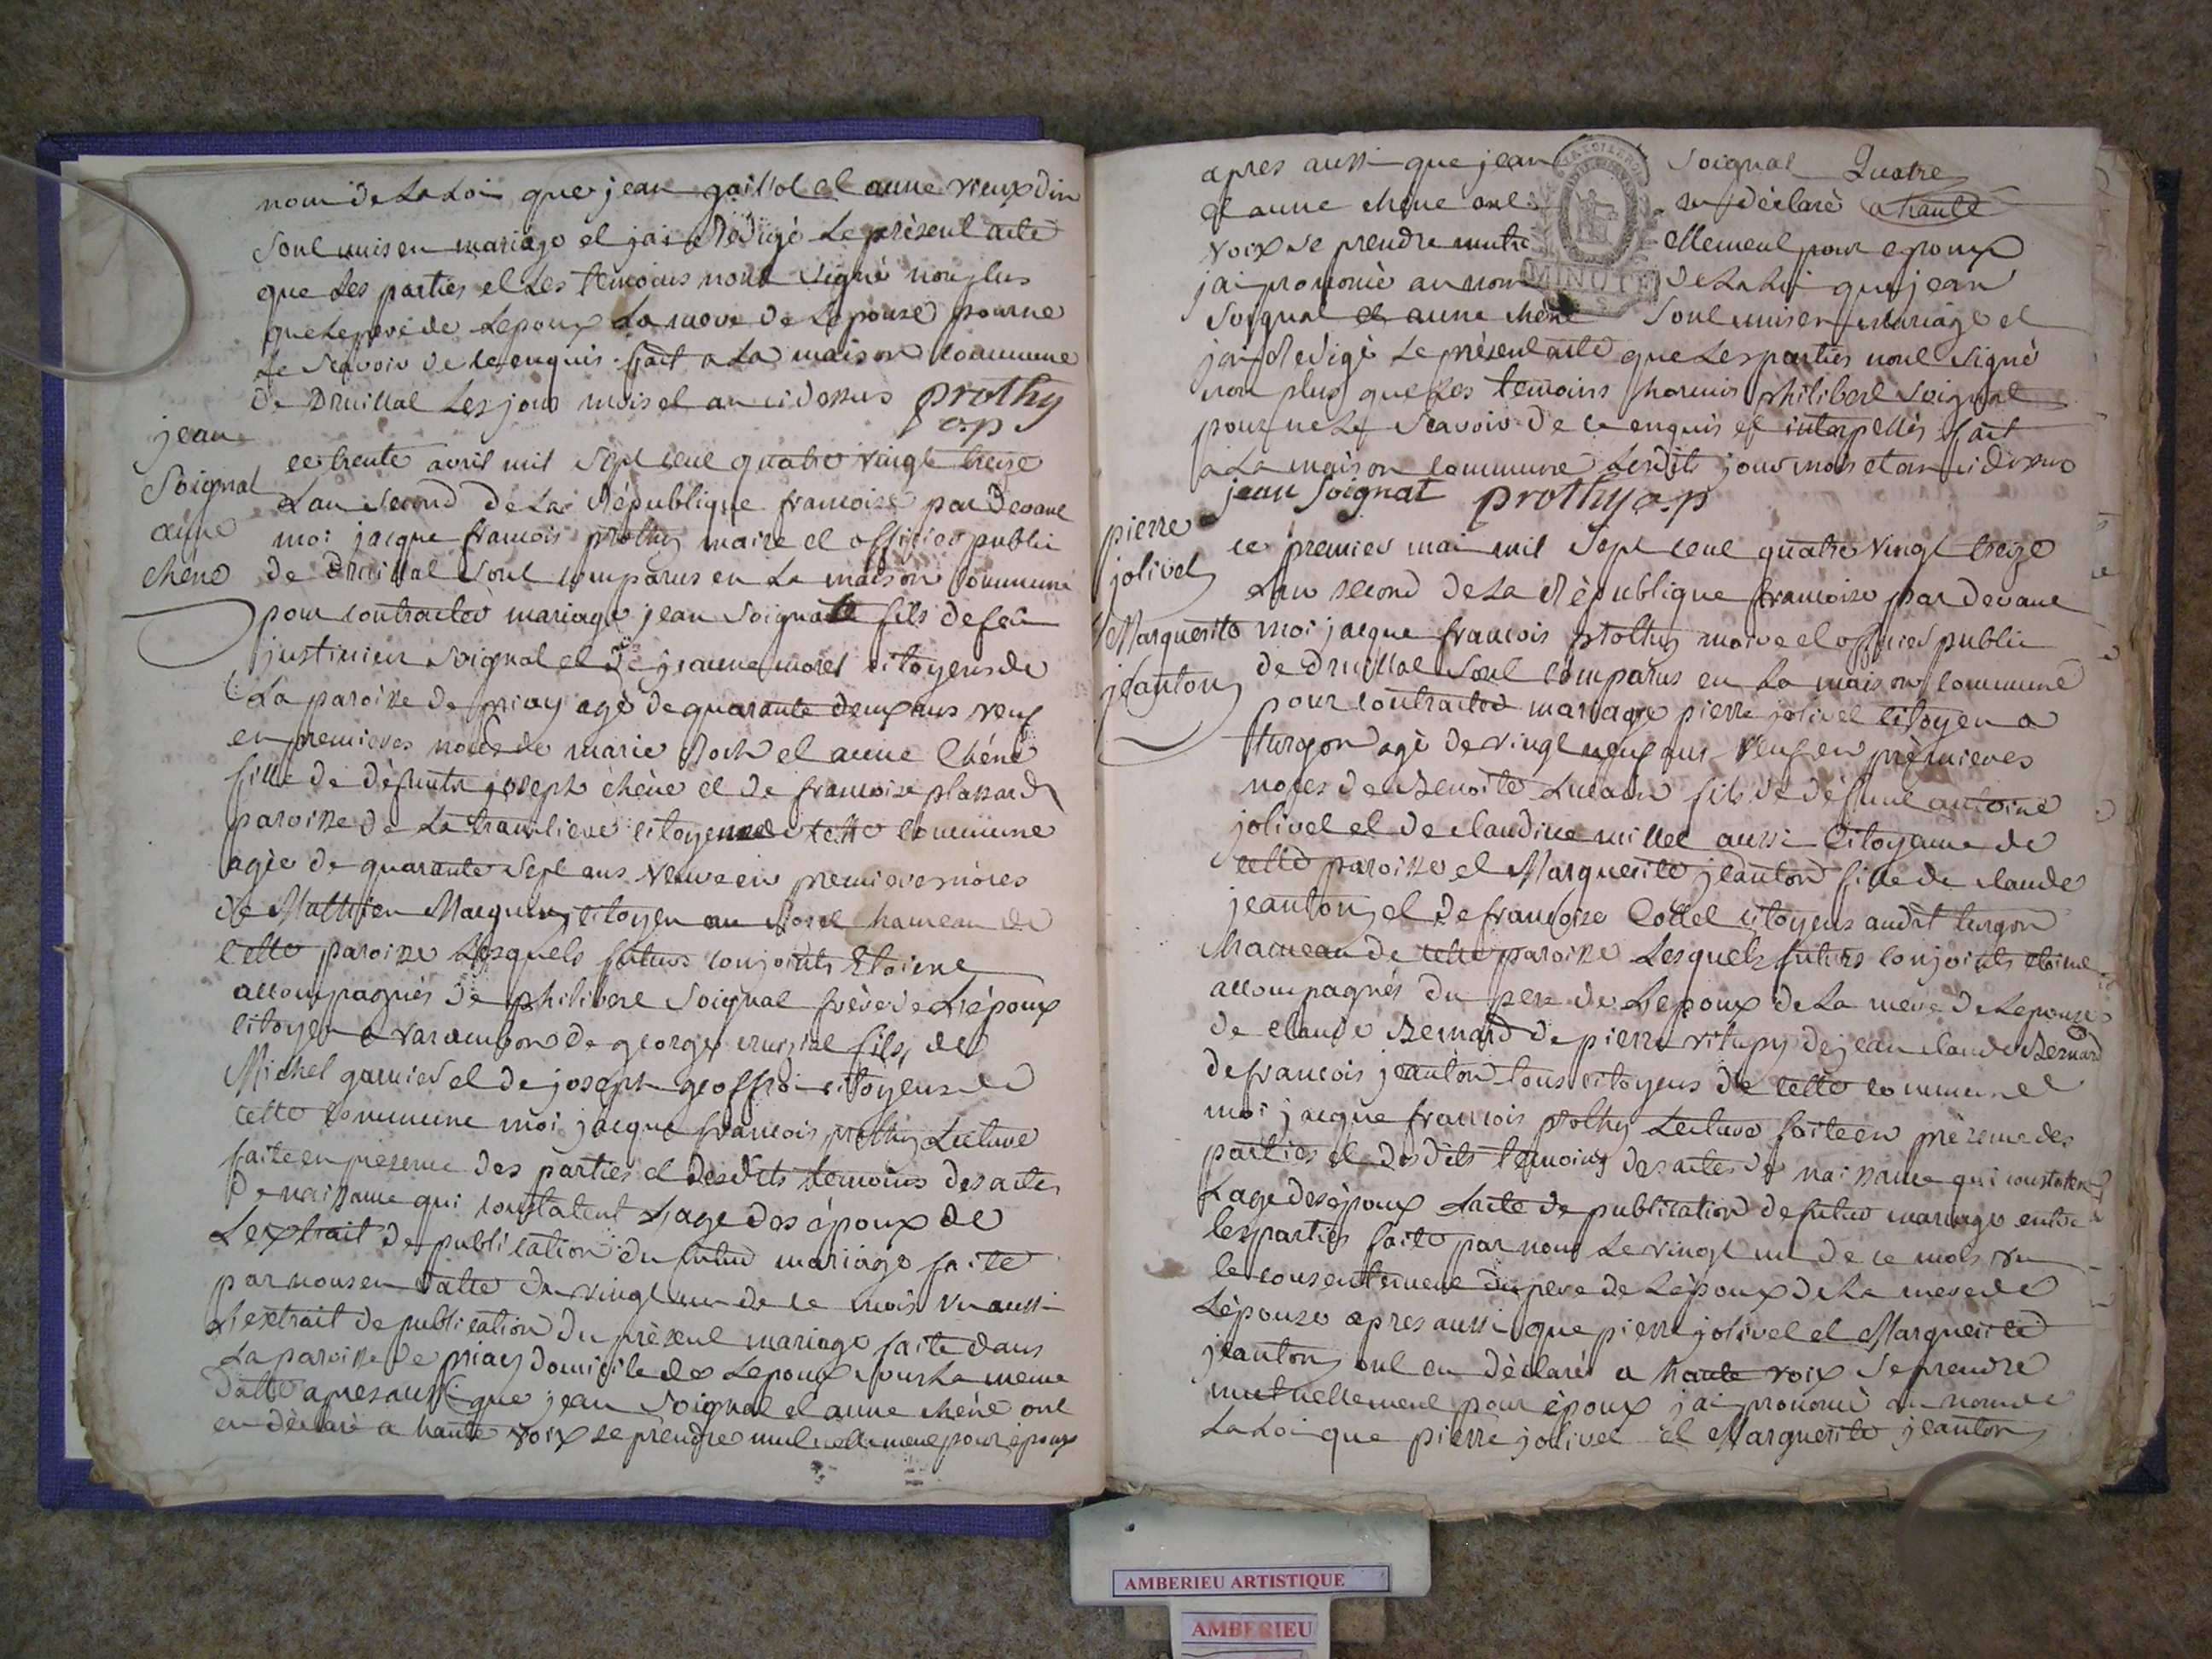 nom de La Loi que jean gaillot et anne vieux din
sont unis en mariage et jai Redigé Le présent acte
que Les parties et Les temoins nont signé non plus
que Le pere de Lepoux La mere de Lepouse pour ne
Le scavoir de ce enquis fait a La maison commune
de Druillat Les jour mois et an ci dessus prothy
o.p
jean
Soignat
anne
chêne
ce trente avril mil sept cent quatre vingt treize
Lan second de La République francoise par devant
moi jacque francois prothy maire et officier public
de Druillat sont comparus en La maison commune
pour contracter mariage jean Soignat fils de feu
justinien Soignat et de jeanne morel citoyens de
La paroisse de priay agé de quarante deux ans veuf
en premieres noces de marie Roch et anne Chêne
fille de défunts joseph chêne et de francoise plassard
paroisse de La tranliere citoyenne cette commune
agée de quarante sept ans veuve en premieres noces
de Mathieu citoyen au hameau de
cette paroisse Lesquels futurs conjoints Etoient
accompagnés de philibert Soignat frère de L'époux
citoyen a varambon de george fils de
Michel garnier et de joseph geoffroi citoyens de
cette commune moi jacque francois prothy Lecture
faite en présence des parties et desdits temoins des actes
de naissance qui constatent L'age des époux de
L'extrait de publication du futur mariage faite
par nous en datte du vingt un de ce mois vu aussi
L'extrait de publication du présent mariage faite dans
La paroisse de priay domicile de Lepoux sous La meme
datte apres aussi que jean Soignat et anne chêne ont
eu déclaré a haute voix se prendre mutuellement pour époux
apres aussi que jean Soignat Quatre
et anne chêne ont eu déclaré a haute
voix se prendre mutuellement pour epoux
MINUTE
jai prononcé au nom de La Loi que jean
Soignat et anne chêne sont unis en mariage et
jai Redigé Le présent acte que Les parties nont signé
non plus que Les temoins hormis philibert Soignat
pour ne Le scavoir de ce enquis et interpellés fait
a La maison commune Lesdits jour mois et an ci dessus
jean Soignat prothy o.p
pierre
jolivet
Marguerite
jeanton
ce premier mai mil sept cent quatre vingt treize
Lan second de La République francoise par devant
moi jacque francois prothy maire et officier public
de druillat sont comparus en La maison commune
pour contracter mariage pierre jolivet citoyen a
turgon agé de vingt neuf ans veuf en premieres
noces de Benoite fils de défunt antoine
jolivet et de claudine millet aussi Citoyenne de
cette paroisse et Marguerite jeanton fille de claude
jeanton et de francoise Collet citoyens audit turgon
hameau de cette paroisse Lesquels futurs conjoints etoient
accompagnés du pere de Lepoux de La mere de Lepouse
de claude Bernard de pierre vitupy de jean claude Bernard
de francois jeanton tous citoyens de cette commune
moi jacque francois prothy Lecture faite en présence des
parties et desdits temoins des actes de naissance qui constatent
L'age des époux L'acte de publication de futur mariage entre
les parties faite par nous Le vingt un de ce mois vu
le consentement du pere de Lépoux de La mere de
Lépouse apres aussi que pierre jolivet et Marguerite
jeanton ont eu déclaré a haute voix se prendre
mutuellement pour époux jai prononcé au nom de
La Loi que pierre jolivet et Marguerite jeanton
AMBERIEU ARTISTIQUE
AMBERIEU